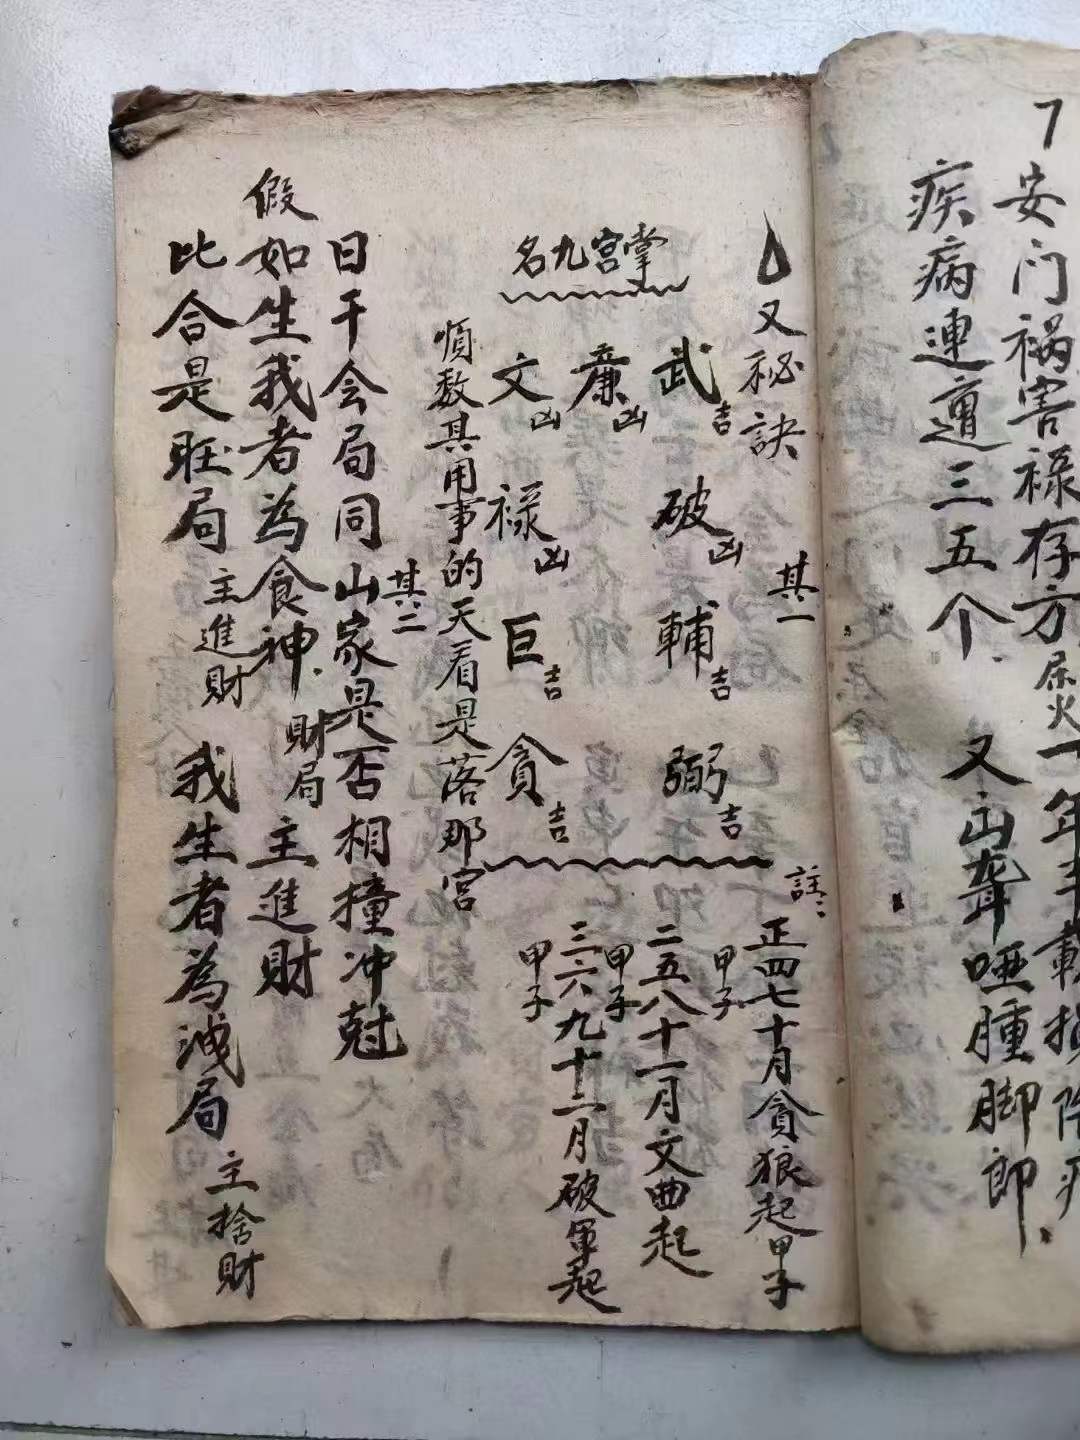 7安门祸害禄存方
疾病連遭三五个
又山聋哑腫脚郎
又秘訣
其一
名九宫掌
武吉 破凶 輔吉 弼吉
廉凶
文凶 禄凶 巨吉 貪吉
註：
正四七十月貪狼起甲子
二五八十一月文曲起甲子
三六九十二月破軍起甲子
順数其用事的天看是落那宫
其二
日干会局同山家是否相撞冲尅
假如生我者為食神 財局 主進財
比合是旺局 主進財 我生者為洩局 主捨財